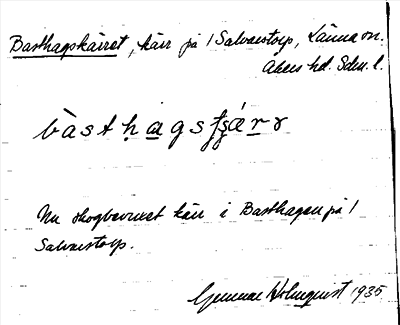 Basthagskärret, kärr på 1 Salvarstorp, Länna sn.
Åkers hd. Södm. l.
bàsthagsʃʂárr
Nu skogbevuxet kärr i Basthagen på 1
Salvarstorp.
Gunnar Holmquist 1935